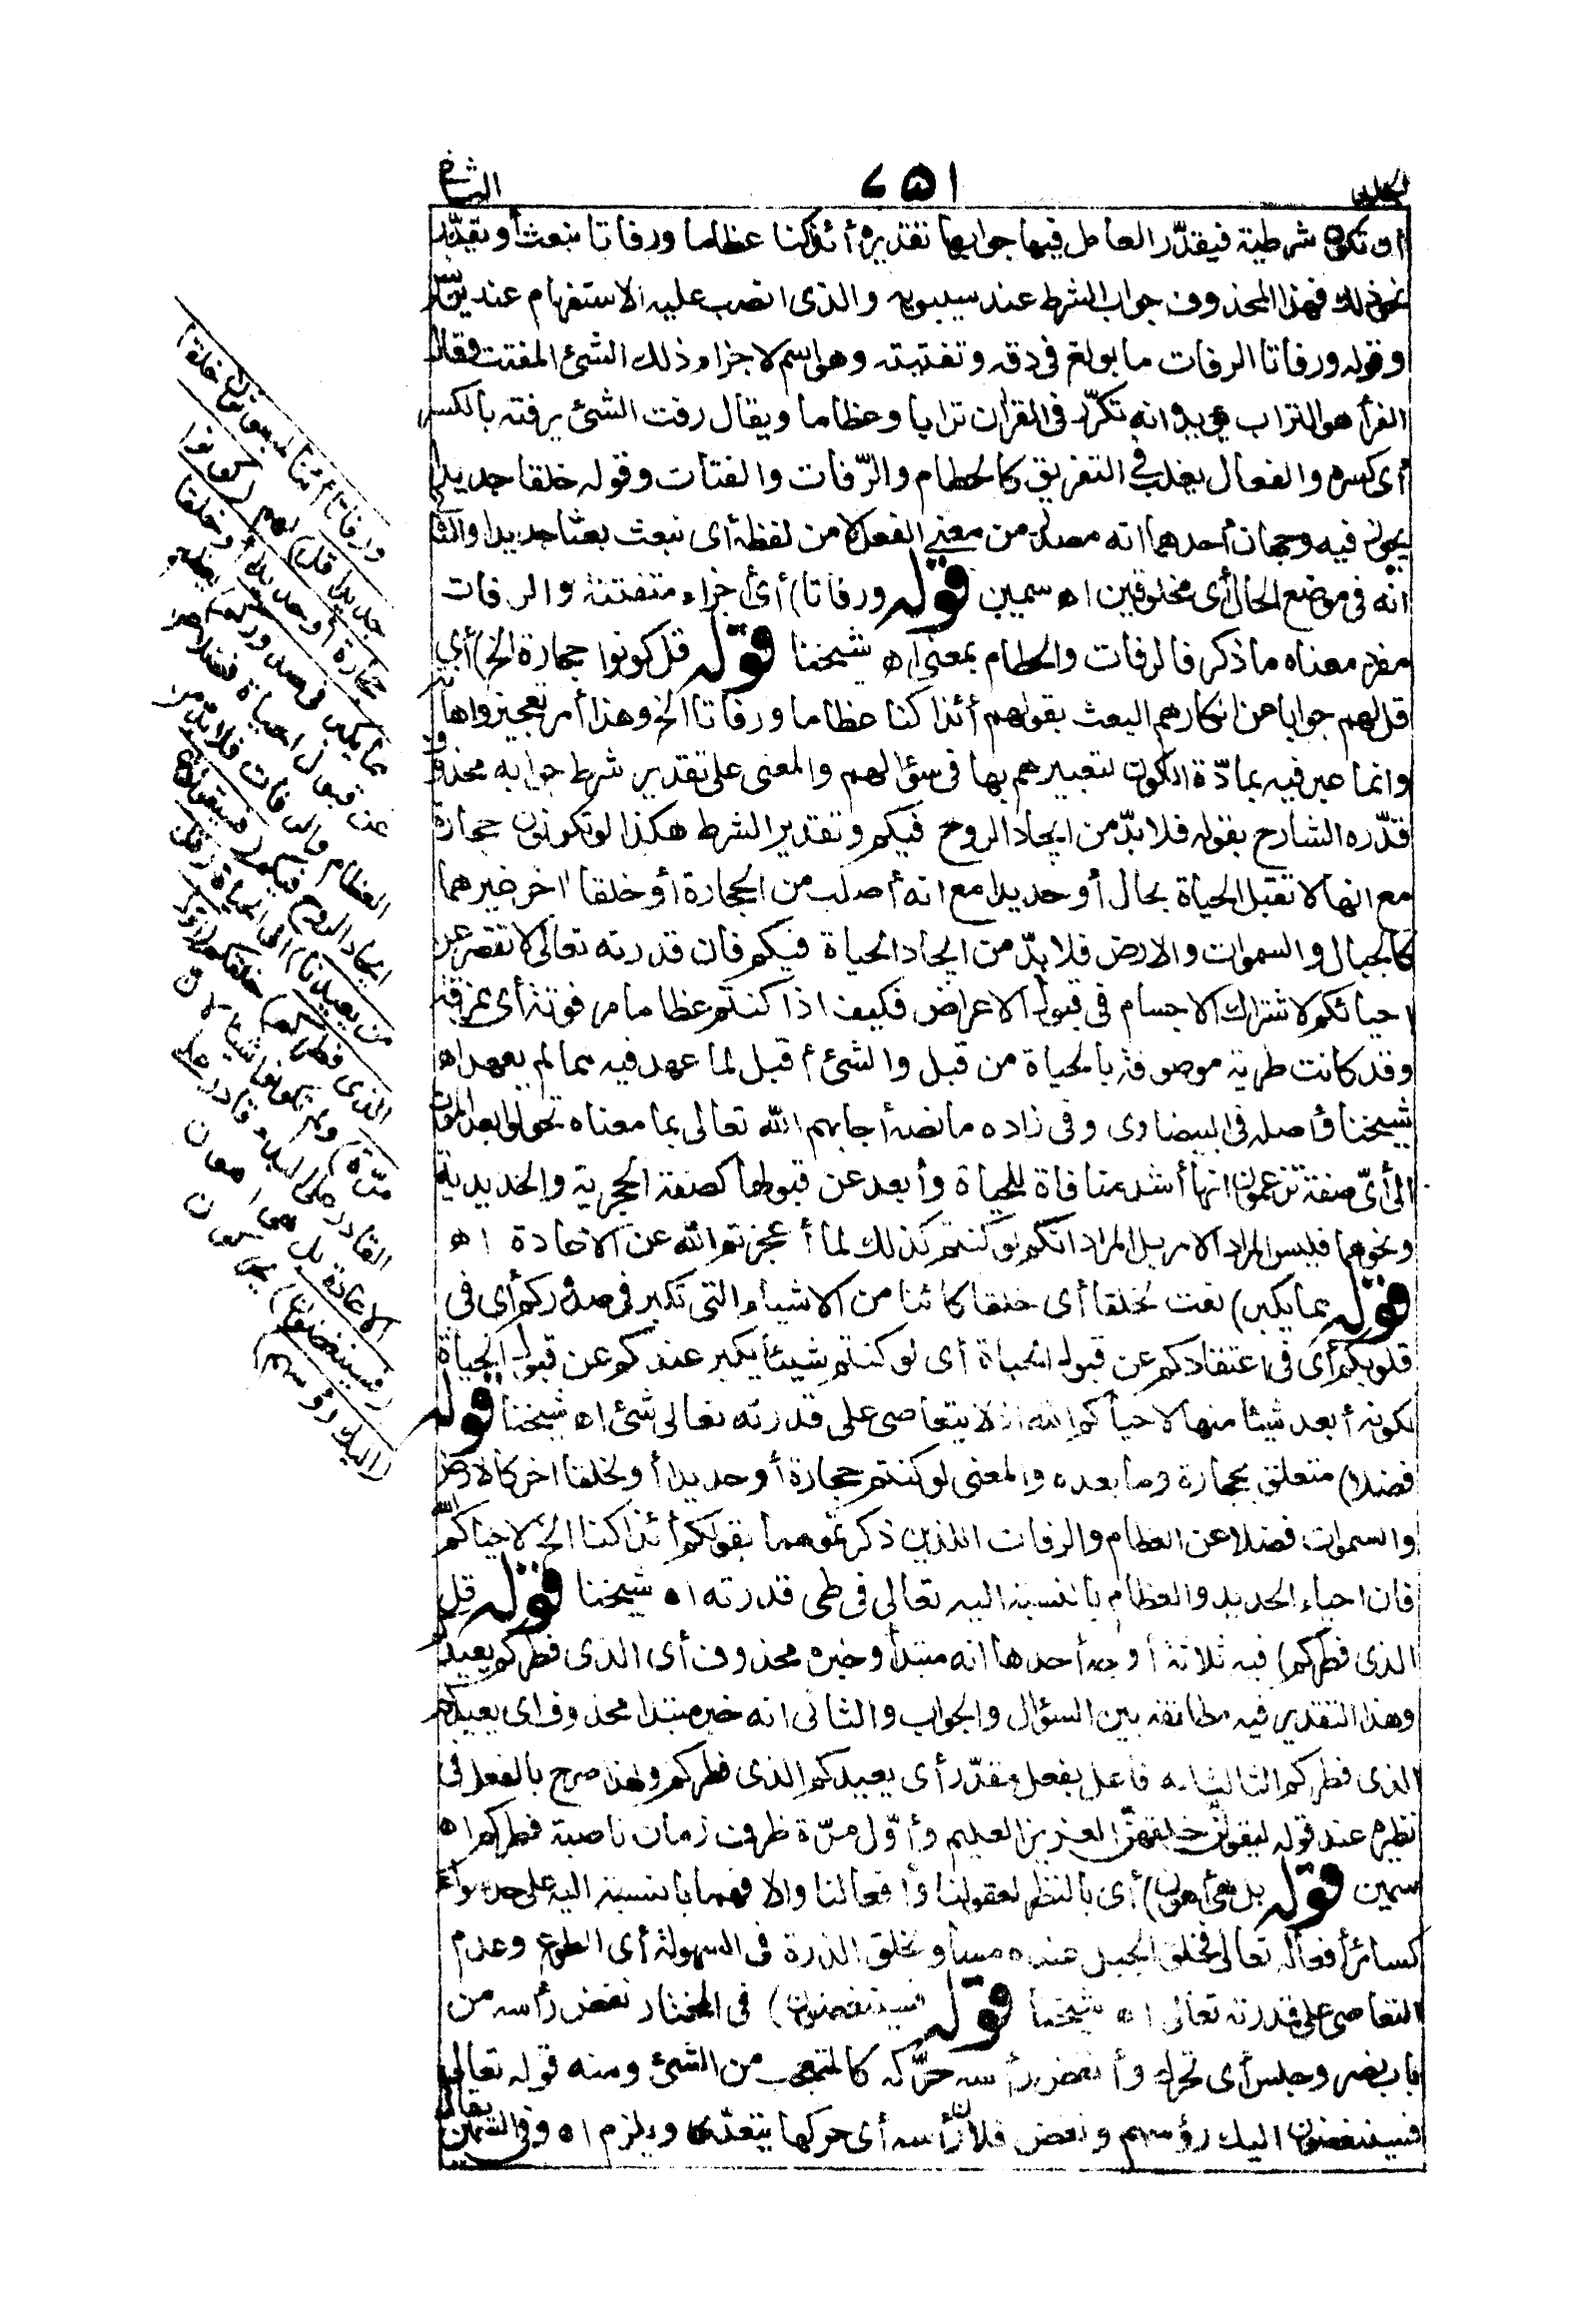 الثانى
٦٥١
أو تكون شرطية فيقدّر العامل فيها جوابها تقديره أئذا كنا عظاما ورفاتا نبعث أو يقدّر
نحو ذلك فهذا المحذوف جواب الشرط عند سيبويه والذى انصب عليه الاستفهام عند يونس
وقوله ورفاتا الرفات ما بولغ فى دقه وتفتيته وهو اسم لاجزاء ذلك الشئ المفتت وقال
الفرأ هو التراب يؤيده انه تكرّر فى القران ترابا وعظاما ويقال رفت الشئ يرفته بالكسر
أى كسره والفعال يغلب فى التفريق كالحطام والرّفات والفتات وقوله خلقا جديدا
يجوز فيه وجهان أحدهما انه مصدر من معنى الفعل لا من لفظه أى نبعث بعثا جديدا والثانى
انه فى موضع الحال أى مخلوقين اه سمين قوله ورفاتا) أى أجزاء متفتتة والرفات
مفرد معناه ما ذكر فالرفات والحطام بمعنى اه شيخنا قوله قل كونوا حجارة الخ) أى
قل لهم جوابا عن انكارهم البعث بقولهم أئذا كنا عظاما ورفاتا الخ وهذا أمر تعجيز واهانة
وانما عبر فيه بمادّة الكون لتعبيرهم بها فى سؤالهم والمعنى على تقدير شرط جوابه محذوف
قدّره الشارح بقوله فلا بدّ من ايجاد الروح فيكم وتقدير الشرط هكذا لو تكونون حجارة
مع انها لا تقبل الحياة بحال أو حديدا مع انه أصلب من الحجارة أو خلقا اخر غيرهما
كالجبال والسموات والارض فلا بدّ من ايجاد الحياة فيكم فان قدرته تعالى لا تقصر عن
احيائكم لاشتراك الاجسام فى قبول الاعراض فكيف اذا كنتم عظاما مرفوتة أى ممزقة
وقد كانت طرية موصوفة بالحياة من قبل والشئ أقبل لما عهد فيه مما لم يعهد اه
شيخنا وأصله فى البيضاوى وفى زاده ما نصه أجابهم الله تعالى بما معناه تحولوا بعد الموت
الى أىّ صفة تزعمون انها أشد منافاة للحياة وأبعد عن قبولها كصفة الحجرية والحديدية
ونحوهما فليس المراد الامر بل المراد انكم لو كنتم كذلك لما أعجزتم الله عن الاعادة اه
قوله مما يكبر) نعت لخلقا أى خلقا كائنا من الاشياء التى تكبر فى صدوركم أى فى
قلوبكم أى فى اعتقادكم عن قبول الحياة أى لو كنتم شيئا يكبر عندكم عن قبول الحياة
لكونه أبعد شيئا منها لاحياكم الله اذ لا يتعاصى على قدرته تعالى شئ اه شيخنا قوله
فضلا) متعلق بحجارة وما بعده والمعنى لو كنتم حجارة أو حديدا أو خلقا اخر كالارض
والسموات فضلا عن العظام والرفات اللذين ذكرتموهما بقولكم أئذا كنا الخ لاحياكم الله
فان احياء الحديد والعظام بالنسبة اليه تعالى فى طى قدرته اه شيخنا قوله قل
الذى فطركم) فيه ثلاثة أوجه أحدها انه مبتدأ وخبره محذوف أى الذى فطركم يعيدكم
وهذا التقدير فيه مطابقة بين السؤال والجواب والثانى انه خبر مبتدا محذوف اى يعيدكم
الذى فطركم الثالث انه فاعل بفعل مقدّر أى يعيدكم الذى فطركم ولهذا صرح بالفعل فى
نظيره عند قوله ليقولن خلقهنّ العزيز العليم وأوّل مرّة ظرف زمان ناصبة فطركم اه
سمين قوله بل هى أهون) أى بالنظر لعقولنا وأفعالنا والا فهما بالنسبة اليه على حد سواء
كسائر أفعاله تعالى فخلق الجبل عنده مساو لخلق الذرة فى السهولة أى الطوع وعدم
التعاصى على قدرته تعالى اه شيخنا قوله فسينغضون) فى المختار نغض رأسه من
باب نصر وجلس أى تحرك وأنغض رأسه حرّكه كالمتعجب من الشئ ومنه قوله تعالى
فسينغضون اليك رؤسهم ونغض فلان رأسه أى حركها يتعدّى ويلزم اه وفى السمين
يقال
ورفاتا أئنا لمبعوثون خلقا
جديدا قل) لهم (كونوا
حجارة أو حديدا أو خلقا
مما يكبر فى صدوركم) يعظم
عن قبول الحياة فضلا عن
العظام والرفات فلا بد من
ايجاد الروح فيكم (فسيقولون
من يعيدنا) الى الحياة (قل
الذى فطركم) خلقكم (أوّل
مرّة) ولم تكونوا شيئا لان
القادر على البدء قادر على
الاعادة بل هى أهون
(فسينغضون) يحركون
(اليك رؤسهم)